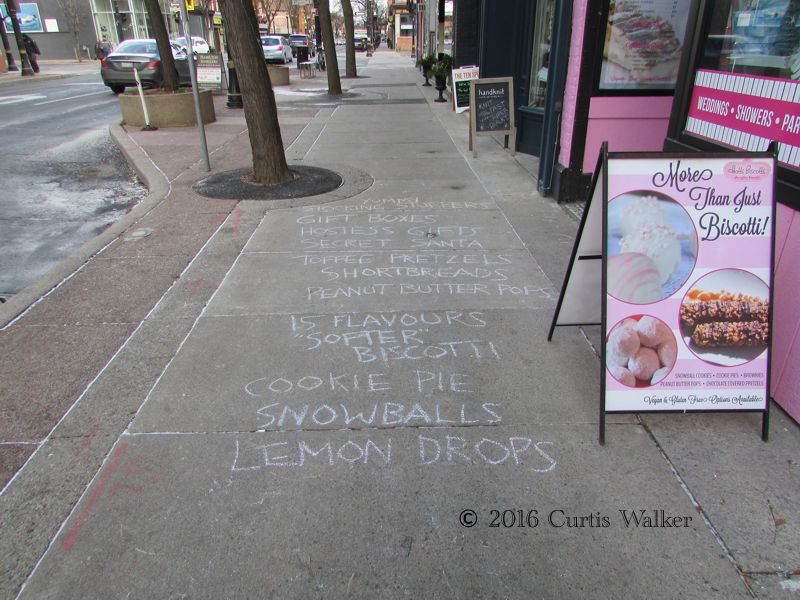 STOCKING STUFFERS
GIFT BOXES
HOSTESS GIFTS
SECRET SANTA
TOFFEE PRETZELS
SHORTBREADS
PEANUT BUTTER POPS
15 FLAVOURS
"SOFTER"
BISCOTTI
COOKIE PIE
SNOWBALLS
LEMON DROPS
More
Than Just
Biscotti!
SNOWBALL COOKIES • COOKIE PIES • BROWNIES
PEANUT BUTTER POPS • CHOCOLATE COVERED PRETZELS
Vegan & Gluten Free Options Available
WEDDINGS • SHOWERS • PAR
handknit
THE TEN SP
© 2016 Curtis Walker